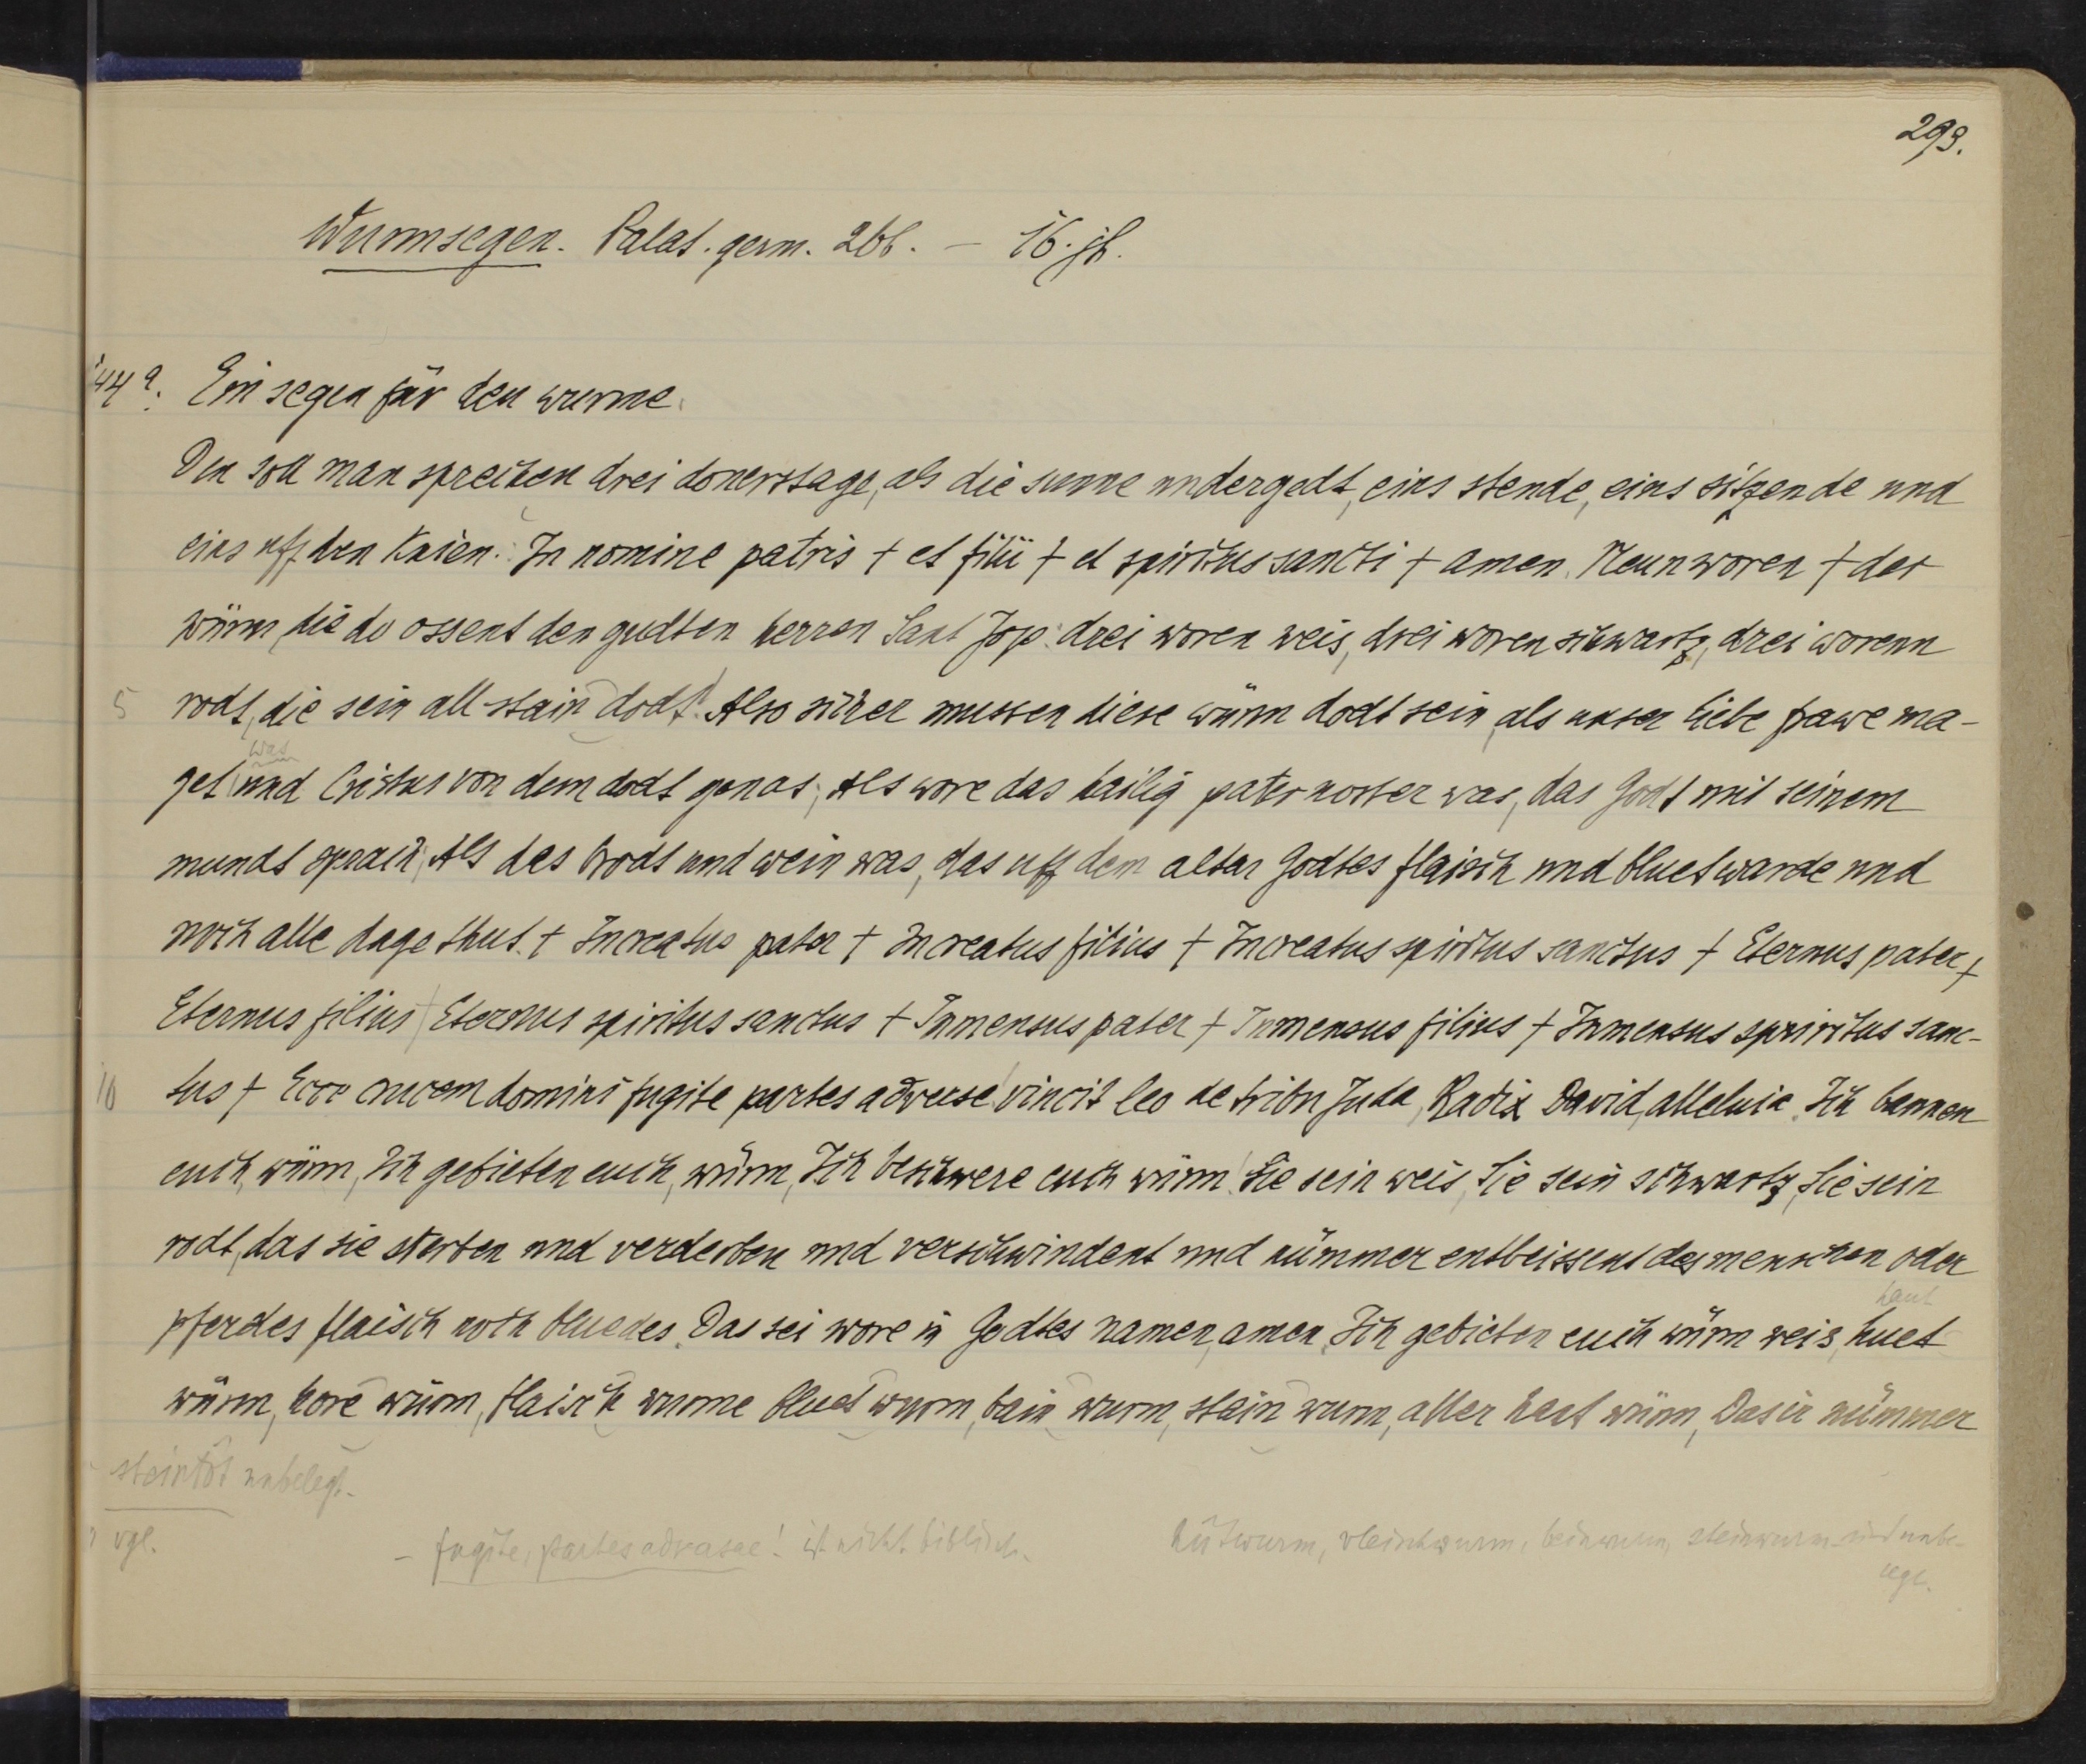 293.
Wurmsegen. Palat. germ. 266. – 16. jh.
144 a. Ein segen für den wurme.
Den soll man sprechen drei donerstage, als die sunne undergedt, eins stende, eins sitzende und
eins uff den knien. In nomine patris + et filii + et spiritus sancti + amen. Neun woren + der
würm, die do ossent den gudten herren Sant Jop: drei woren weis, drei woren schwartz, drei worenn
5 rodt, die sein all stain dodt. Also sicher mussen diese würm dodt sein, als unser liebe frawe ma-
was
get und Cristus von dem dodt genas; Als wore das hailig pater noster was, das Godt mit seinem
mundt sprach; Als das brodt und wein was, das uff dem altar Godtes flaisch und bluet warde und
noch alle dage thut. + Increatus pater + Increatus filius + Increatus spiritus sanctus + Eternus pater +
Eternus filius + Eternus spiritus sanctus + Inmensus pater + Inmensus filius + Inmensus spriritus sanc-
10 tus + Ecce crucem domini fugite partes adverse! vincit leo de tribu Juda, Radix David, alleluia. Ich bannen
euch, würm, Ich gebieten euch, würm, Ich beschwere euch würm! Sie sein weis, Sie sein schwartz, Sie sein
rodt, das sie sterben und verderben und verschwindent und nümmer entbeissent des menschen oder
haut
pferdes flaisch noch bluedes. Das sei wore in Godtes namen, amen. Ich gebieten euch würm weis, huet
würm, hore würm, flaisch wurme bluet wurm, bain wurm, stain wurm, aller hast würm, Das ir nümmer
steintôt unbelegt.
vgl. – fugite, partes advasae! ist nicht biblisch. hûtwurm, vleischwurm, beinwurm, steinwurm sind unbe-
legt.